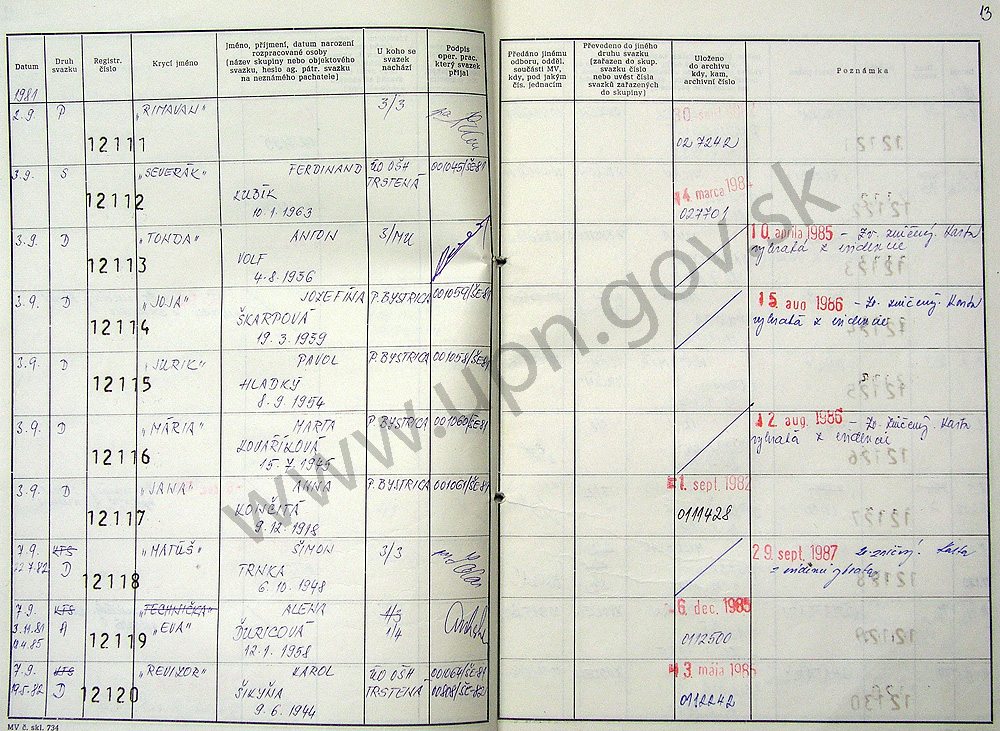 13
Datum
Druh svazku
Registr. číslo
Krycí jméno
Jméno, příjmení, datum narození
rozpracované osoby
(název skupiny nebo objektového
svazku, heslo ag. pátr. svazku
na neznámého pachatele)
U koho se
svazek
nachází
Podpis
oper. prac.
který svazek
přijal
Předáno jinému
odboru, odděl.
součásti MV,
kdy, pod jakým
čís. jednacím
Převedeno do jiného
druhu svazku
(zařazen do skup.
svazku číslo
nebo uvést čísla
svazků zařazených
do skupiny)
Uloženo
do archivu
kdy, kam,
archivní číslo
Poznámka
1981
2.9 P 12111 „RIMAVAN" 3/3
027242
3.9. S 12112 „SEVERÁK" FERDINAND ÚO OŠH 001045/ŠE81
KUBÍK TRSTENÁ 14. marca 198
10.1.1963 027701
3.9. D 12113 „TONDA" ANTON 3/MU
VOLF
4.8.1936
10. apríla 1985 – Zv. zničený. Karta
vybratá z evidencie
3.9. D 12114 „JOJA" JOZEFÍNA P. BYSTRICA 001059/ŠE81
ŠKARPOVÁ
19.3.1939
15. aug 1986 – Zv. zničený. Karta
vybratá z evidencie
3.9. D 12115 „JURIK" PAVOL P. BYSTRICA 001058/ŠE81
HLADKÝ
8.9.1954
3.9. D 12116 „MÁRIA" MARTA P. BYSTRICA 001060/ŠE81
KOVAŘÍKOVÁ
15.7.1945
12. aug. 1986 – Zv. zničený. Karta
vybratá z evidencie
3.9. D 12117 „JANA" ANNA P. BYSTRICA 001061/ŠE81
KONČITÁ
9.12.1918
1. sept. 1982
0111428
7.9. KTS 12118 „MATÚŠ" ŠIMON 3/3
D TRNKA
6.10.1948
29. sept. 1987 Zv. zničený. Karta
z evidencie
7.9. KTS 12119 „TECHNIČKA" ALENA 1/3
3.11.81 A „EVA" ĎURICOVÁ 1/4
12.1.1958
6. dec. 1985
0112500
7.9. KTS 12120 „REVIZOR" KAROL ÚO OŠH 001064/ŠE-81
19.5.82 D ŠIKYŇA TRSTENÁ 00808/ŠE-82
9.6.1944
3. mája 198
0112242
MV č. skl. 734
www.upn.gov.sk